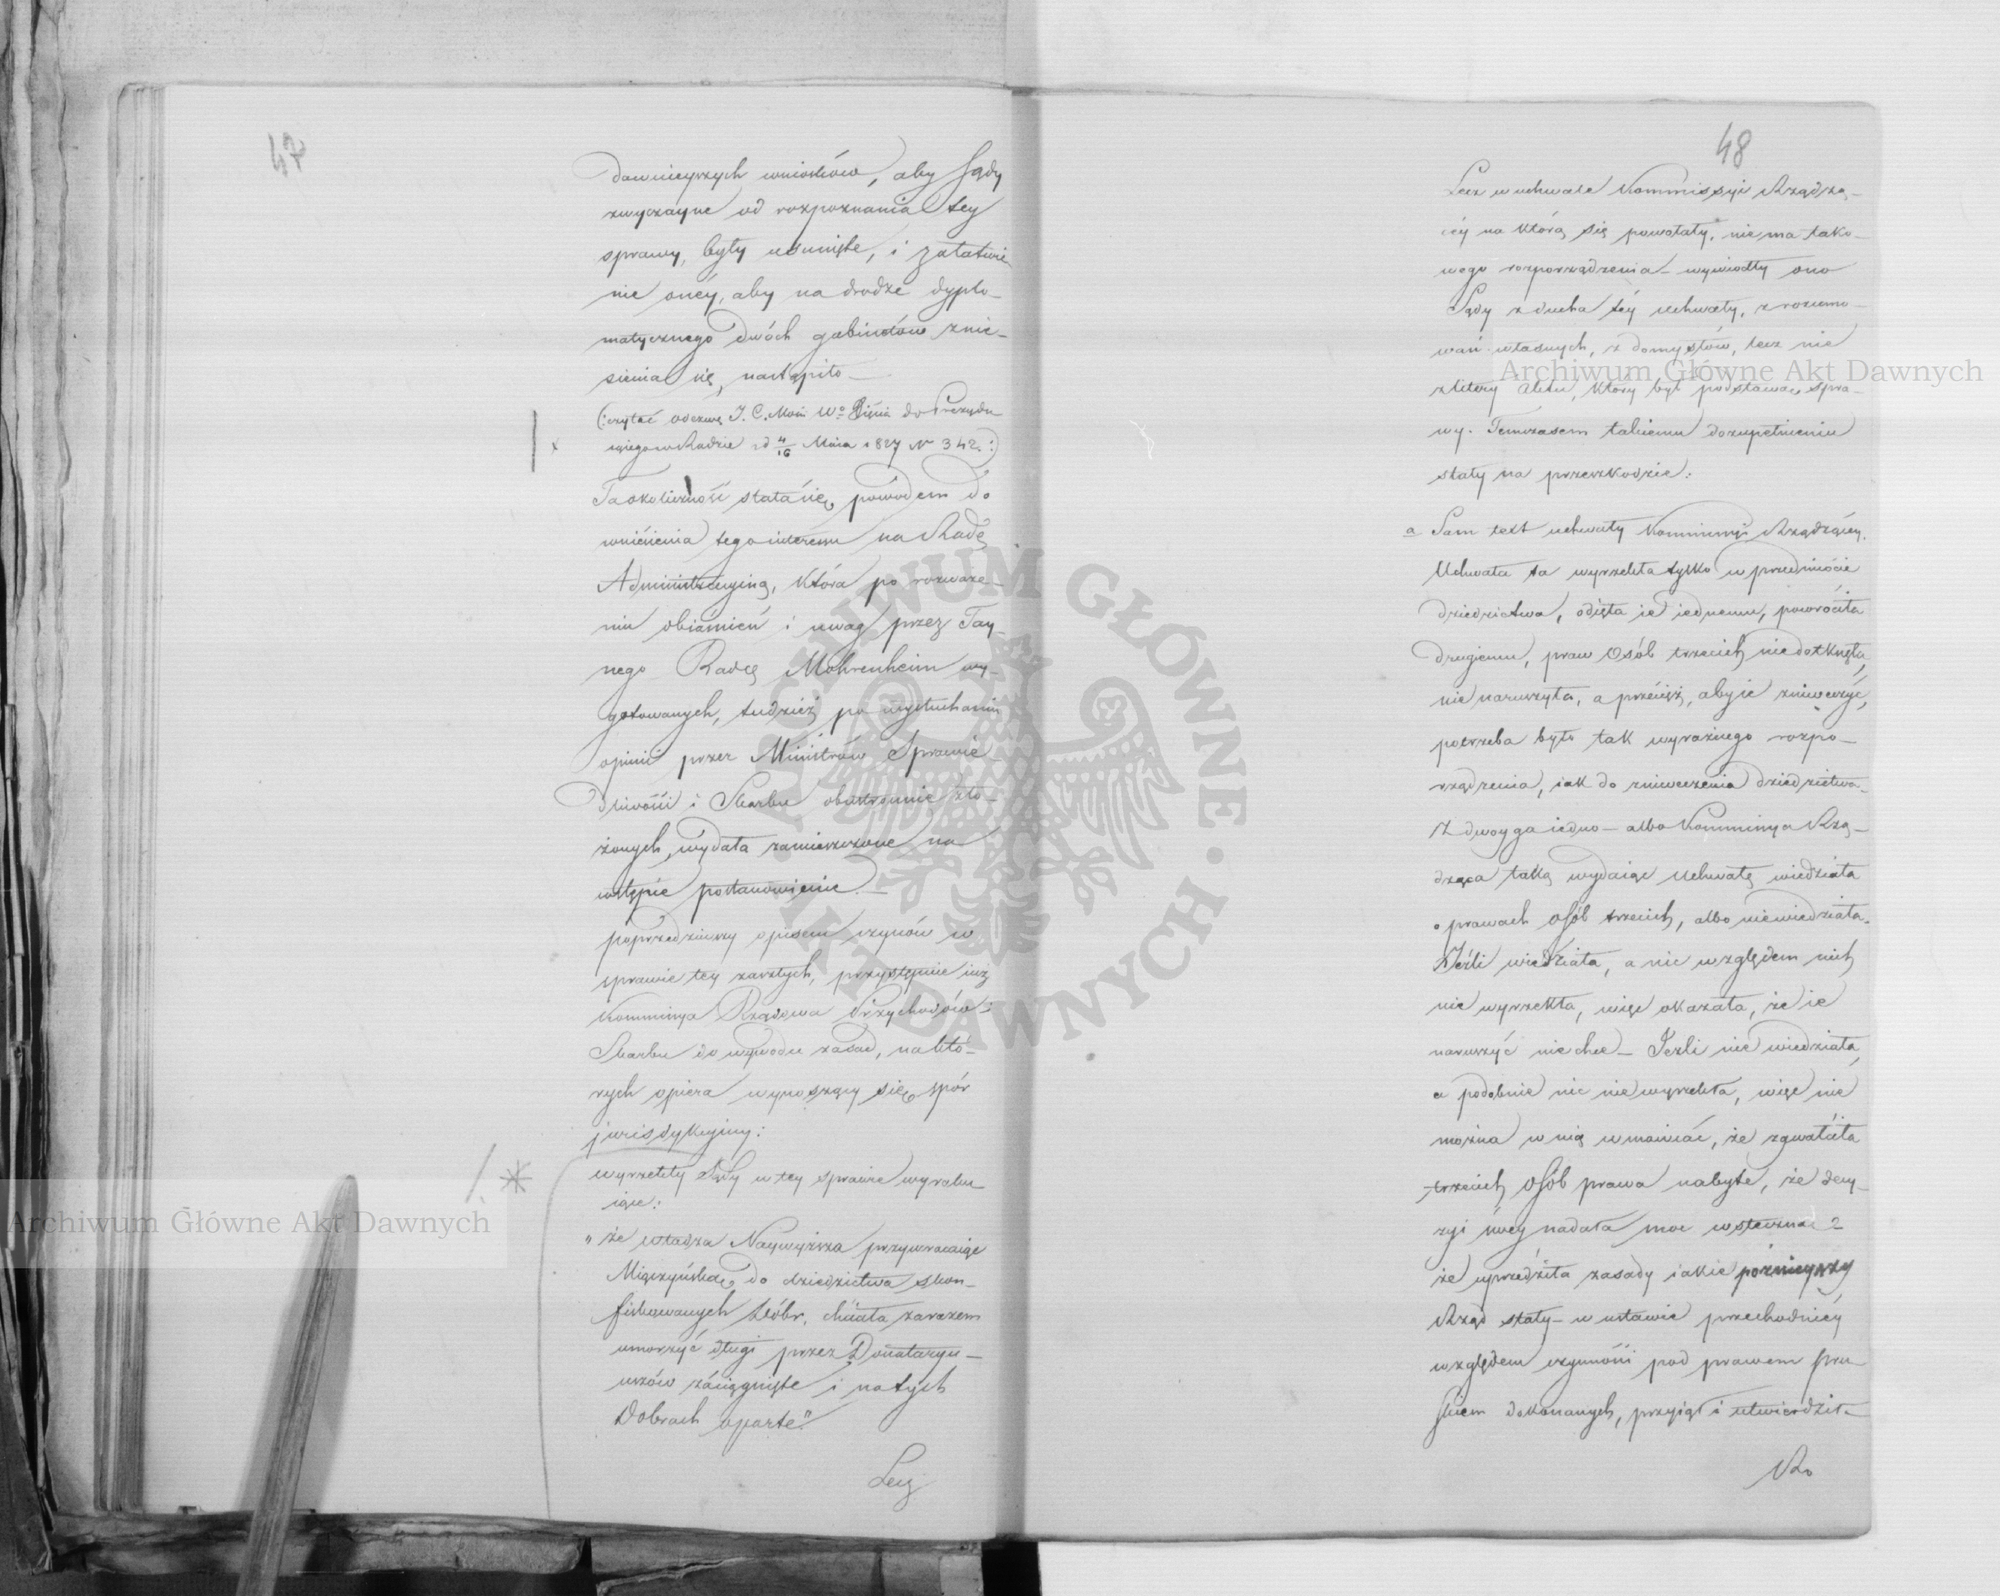 47
dawnieyszych wniosków, aby Sądy
zwyczayne od rozpoznania tey
sprawy, były usunięte, i załatwie
nie onéy, aby na drodze dyplo-
matycznego dwóch gabinetów znie-
sienia się, nastąpiło —
(:czytać odezwę J. C. Mości Wo Xięcia do Prezydu
iącego w Radzie od 4/16 Maia 1827 Nr 342.:)
Ta okoliczność stała się powodem do
wniesienia tego interessu na Radę
Administracyiną, która po rozważe-
niu obiaśnień i uwag przez Tay-
nego Radcę Mohrenheim wy-
gotowanych, tudzież po wysłuchaniu
opinii przez Ministrów Sprawie-
dliwości i Skarbu obustronnie zło-
żonych, wydała zamieszczone na
wstępie postanowienie. —
Poprzedziwszy opisem czynów w
sprawie tey zaszłych, przystępuie iuż
Kommissya Rządowa Przychodów i
Skarbu do wywodu zasad, na któ-
rych opiera wynoszący się spór
jurisdykcyiny:
wyrzekły Sądy w tey sprawie wyroku-
iąc:
„że władza Naywyższa przywracaiąc
Miączyńską do dziedzictwa skon-
fiskowanych Dóbr, chciała zarazem
umorzyć długi przez Donataryu-
szów zaciągnięte i na tych
Dobrach oparte."
Lecz
48
Lecz w uchwale Kommissyi Rządzą-
céy na którą się powołały, nie ma tako-
wego rozporządzenia — wywiodły ono
Sądy z ducha téy uchwały, z rozumo-
wań własnych, z domysłów, lecz nie
z litery aktu, który był podstawą spra-
wy. Temczasem takiemu dozupełnieniu
stały na przeszkodzie:
a Sam text uchwały Kommissyi Rządzącey.
Uchwała ta wyrzekła tylko w przedmiocie
dziedzictwa, odięła ie iednemu, powróciła
drugiemu, praw osób trzecich niedotknęła,
nie naruszyła, a przecież, aby ie zniweczyć,
potrzeba było tak wyraźnego rozpo-
rządzenia, iak do zniweczenia dziedzictwa.
Z dwoyga iedno — albo Kommissya Rzą-
dząca taką wydaiąc Uchwałę wiedziała
o prawach osób trzecich, albo niewiedziała.
Jeźli wiedziała, a nic względem nich
nie wyrzekła, więc okazała, że ie
naruszyć nie chce — Jeżli nie wiedziała,
a podobnie nic nie wyrzekła, więc nie
można w nią wmawiać, że zgwałciła
trzecich osób prawa nabyte, że decy-
zyi swey nadała moc wsteczną?
że uprzedziła zasady iakie póznieyszy
Rząd stały — w ustawie przechodniéy
względem czynności pod prawem pru-
skiem dokonanych, przyiął i utwierdził —
Ro
Archiwum Główne Akt Dawnych
Archiwum Główne Akt Dawnych
ARCHIWUM GŁÓWNE · AKT DAWNYCH ·